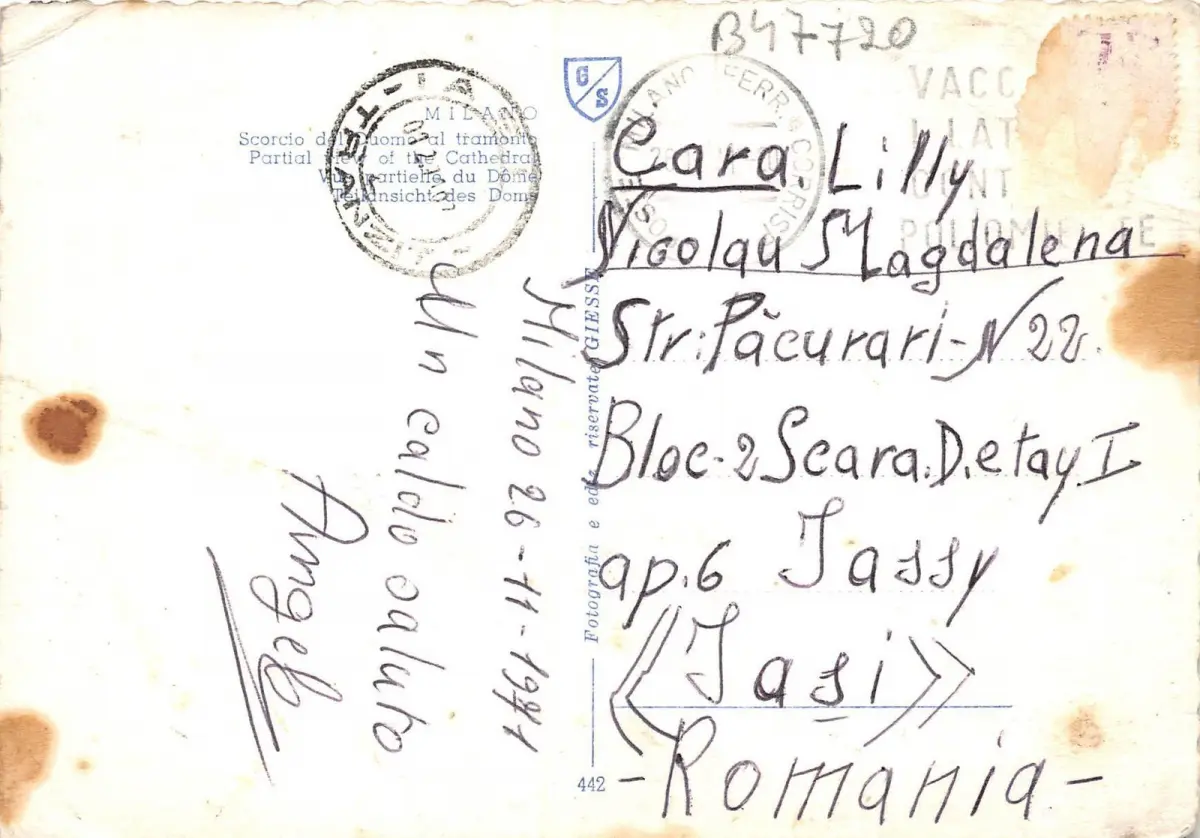 B47720
G S
MILANO
Scorcio del Duomo al tramonto
Partial view of the Cathedral
Vue partielle du Dôme
Teilansicht des Doms
MILANO FERR. CORRISP
VACC
CONT
Cara Lilly
Nicolau Magdalena
Str: Păcurari-N 22.
Bloc-2 Scara.D.etaj.I
ap.6 Jassy
《Jași》
-Romania-
Milano 26-11-1971
Un caldo saluto
Angelo
Fotografia e ediz. riservate GIESSE
442